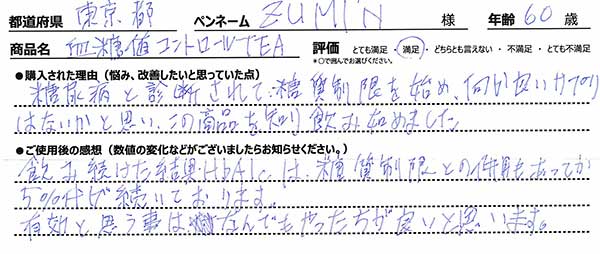 都道府県 東京都 ペンネーム ZUMIN 様 年齢 60 歳
商品名 血糖値コントロールTEA 評価 とても満足・満足・どちらとも言えない・不満足・とても不満足
※〇で囲んでお選びください。
●購入された理由（悩み、改善したいと思っていた点）
糖尿病と診断されて、糖質制限を始め、何か良いサプリ
はないかと思い、この商品を知り飲み始めました
●ご使用後の感想（数値の変化などがございましたらお知らせください。）
飲み続けた結果、HbA1cは、糖質制限との併用もあってか
5%代が続いております。
有効と思う事は なんでもやった方が良いと思います。